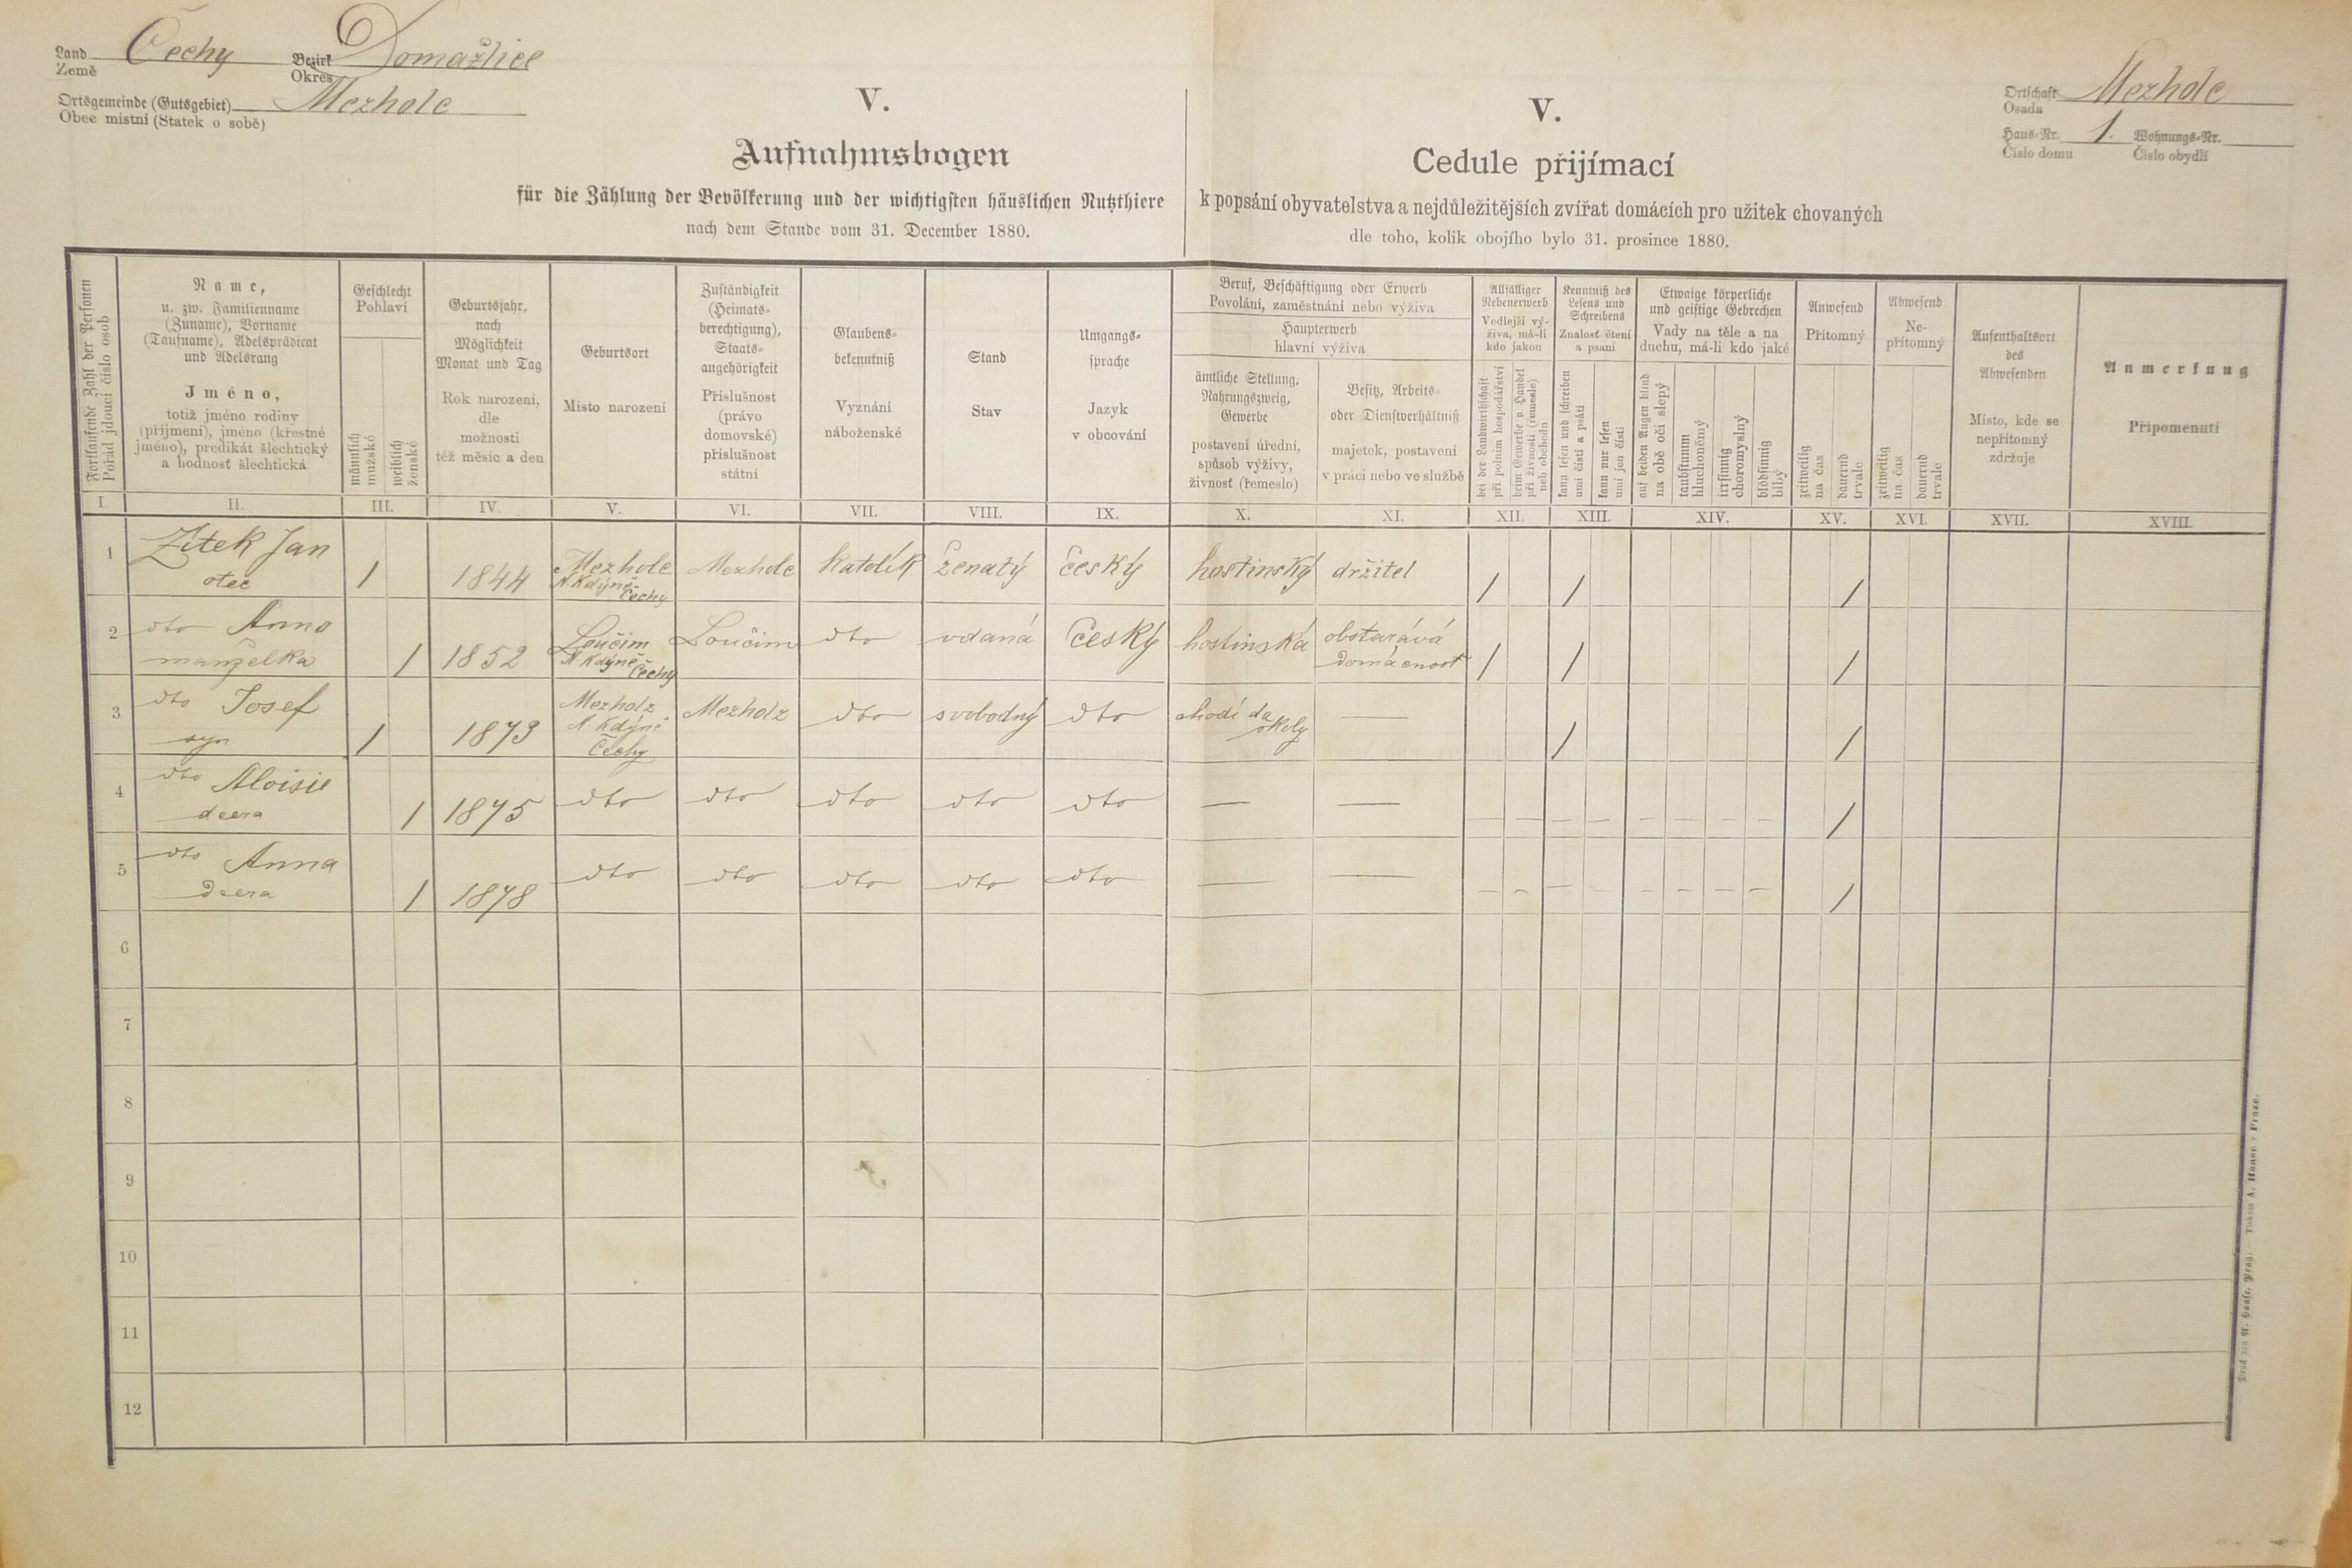 Land Čechy Bezirk Domažlice
Země Okres
Ortsgemeinde (Gutsgebiet) Mezhole
Obec místní (Statek o sobě)
V.
Aufnahmsbogen
für die Zählung der Bevölkerung und der wichtigsten häuslichen Nutzthiere
nach dem Stande vom 31. December 1880.
V.
Cedule přijímací
k popsání obyvatelstva a nejdůležitějších zvířat domácích pro užitek chovaných
dle toho, kolik obojího bylo 31. prosince 1880.
Ortschaft Mezhole
Osada
Haus-Nr. 1. Wohnungs-Nr.
Číslo domu Číslo obydlí
Fortlaufende Zahl der Personen
Pořád jdoucí číslo osob
Name,
u. zw. Familienname
(Zuname), Vorname
(Taufname), Adelsprädicat
und Adelsrang
Jméno,
totiž jméno rodiny
(příjmení), jméno (křestné
jméno), predikát šlechtický
a hodnost šlechtická
Geschlecht
Pohlaví
männlich
mužské
weiblich
ženské
Geburtsjahr,
nach
Möglichkeit
Monat und Tag
Rok narození,
dle
možnosti
též měsíc a den
Geburtsort
Místo narození
Zuständigkeit
(Heimats-
berechtigung),
Staats-
angehörigkeit
Příslušnost
(právo
domovské)
příslušnost
státní
Glaubens-
bekenntniß
Vyznání
náboženské
Stand
Stav
Umgangs-
sprache
Jazyk
v obcování
Beruf, Beschäftigung oder Erwerb
Povolání, zaměstnání nebo výživa
Haupterwerb
hlavní výživa
ämtliche Stellung,
Nahrungszweig,
Gewerbe
postavení úřední,
způsob výživy,
živnost (řemeslo)
Besitz, Arbeits-
oder Dienstverhältniß
majetek, postavení
v práci nebo ve službě
Allfälliger
Nebenerwerb
Vedlejší vý-
živa, má-li
kdo jakou
bei der Landwirthschaft
při polním hospodářství
beim Gewerbe o. Handel
při živnosti (řemesle)
neb obchodu
Kenntniß des
Lesens und
Schreibens
Znalost čtení
a psaní
kann lesen und schreiben
umí čísti a psáti
kann nur lesen
umí jen čísti
Etwaige körperliche
und geistige Gebrechen
Vady na těle a na
duchu, má-li kdo jaké
auf beiden Augen blind
na obě oči slepý
taubstumm
hluchoněmý
irrsinnig
choromyslný
blödsinnig
blbý
Anwesend
Přítomný
zeitweilig
na čas
dauernd
trvale
Abwesend
Ne-
přítomný
zeitweilig
na čas
dauernd
trvale
Aufenthaltsort
des
Abwesenden
Místo, kde se
nepřítomný
zdržuje
Anmerkung
Připomenutí
I. II. III. IV. V. VI. VII. VIII. IX. X. XI. XII. XIII. XIV. XV. XVI. XVII. XVIII.
1 Zítek Jan
otec
1 1844
Mezhole
N Kdýně
Čechy
Mezhole katolík ženatý český hostinský držitel / / /
2 dto Anna
manželka
1 1852
Loučim
N Kdýně
Čechy
Loučim dto vdaná český hostinská
obstarává
domácnost
/ / /
3 dto Josef
syn
1 1873
Mezholz
N. Kdýně
Čechy
Mezholz dto svobodný dto
chodí do
školy
— / /
4 dto Aloisie
dcera
1 1875 dto dto dto dto dto — — – – – – – – – – /
5 dto Anna
dcera
1 1878 dto dto dto dto dto — — – – – – – – – – /
6
7
8
9
10
11
12
Druck von A. Haase, Prag. — Tiskem A. Haase v Praze.